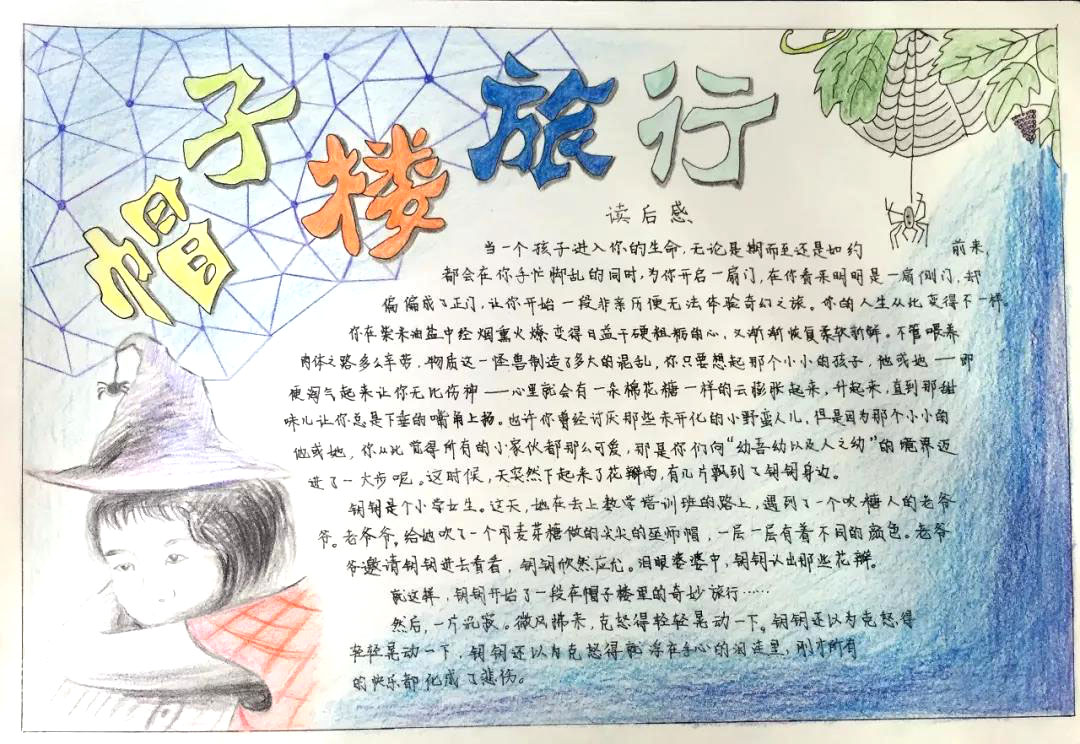 帽子楼旅行
读后感
当一个孩子进入你的生命,无论是期而至还是如约 前来,
都会在你手忙脚乱的同时,为你开启一扇门,在你看来明明是一扇侧门,却
偏偏成了正门,让你开始一段非亲历便无法体验奇幻之旅。你的人生从此变得不一样。
你在柴米油盐中经烟熏火燎变得日益干硬粗粝的心,又渐渐恢复柔软新鲜。不管喂养
肉体之路多么辛劳,物质这一怪兽制造了多大的混乱,你只要想起那个小小的孩子,他或她——即
便淘气起来让你无比伤神——心里就会有一朵棉花糖一样的云膨胀起来,升起来,直到那甜
味儿让你总是下垂的嘴角上扬。也许你曾经讨厌那些未开化的小野蛮人儿,但是因为那个小小的
他或她,你从此觉得所有的小家伙都那么可爱,那是你们向“幼吾幼以及人之幼”的境界迈
进了一大步呢。这时候,天突然下起来了花瓣雨,有几片飘到了钥钥身边。
钥钥是个小学女生。这天,她在去上数学培训班的路上,遇到了一个吹糖人的老爷
爷。老爷爷,给她吹了一个用麦芽糖做的尖尖的巫师帽,一层一层有着不同的颜色。老爷
爷邀请钥钥进去看看,钥钥欣然应允。泪眼婆婆中,钥钥认出那些花瓣。
就这样,钥钥开始了一段在帽子楼里的奇妙旅行……
然后,一片沉寂。微风拂来,克怒得轻轻晃动一下。钥钥还以为克怒得
轻轻晃动一下,钥钥还以为克怒得就浮在手心的泪涟里,刚才所有
的快乐都化成了悲伤。